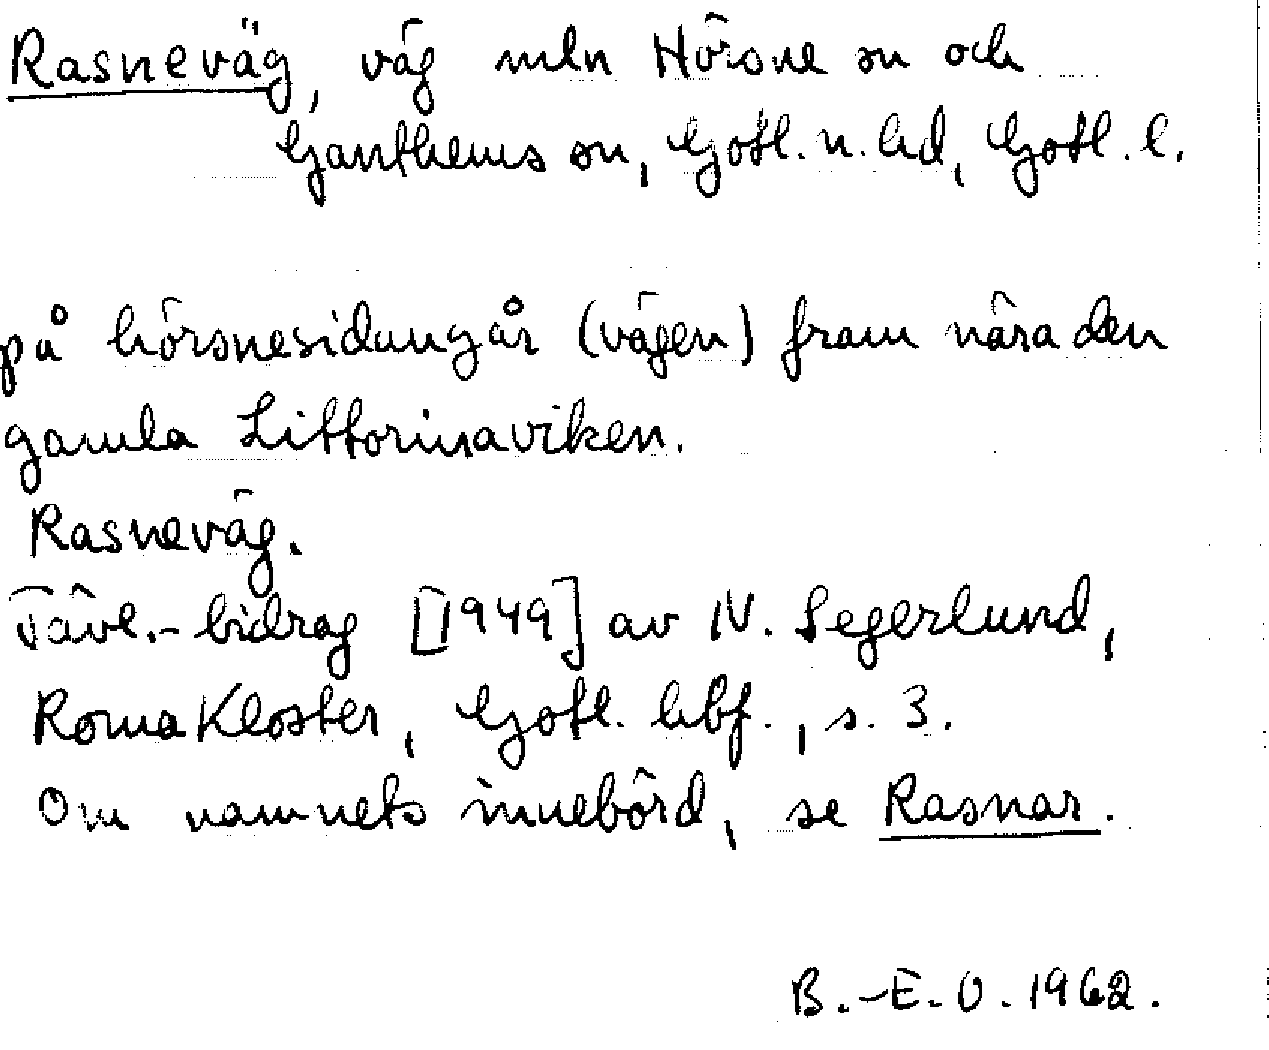 Rasneväg, väg mln Hörsne sn och
Ganthems sn, Gotl. n. hd, Gotl. l.
på hörsnesidan går (vägen) fram nära den
gamla Littorinaviken.
Rasneväg.
Tävl.-bidrag [1949] av N. Segerlund,
Roma Kloster, Gotl. hbf., s. 3.
Om namnets innebörd, se Rasnar.
B.-E. O. 1962.